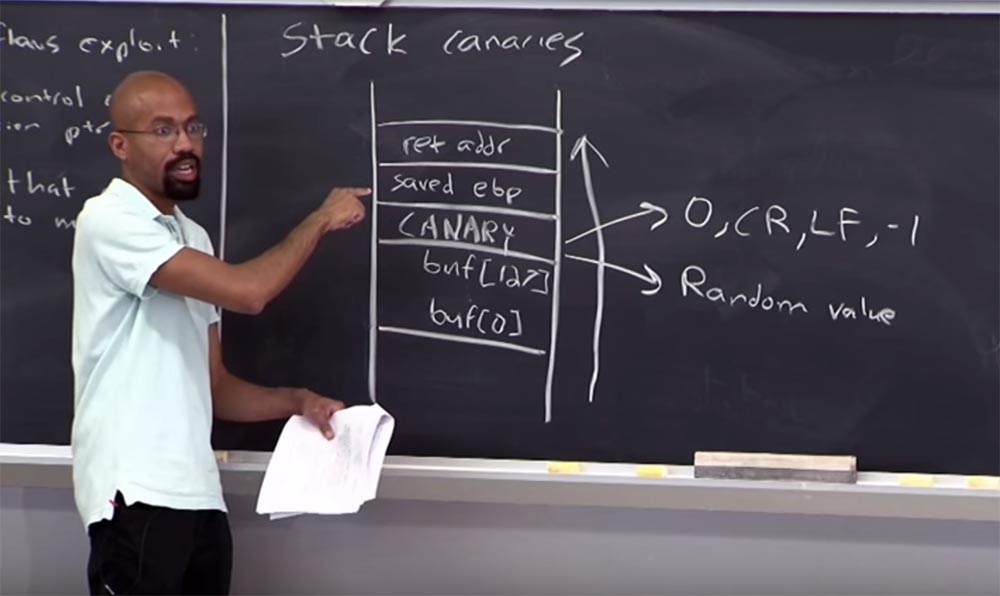 flaws exploit:
control
ptr
that
to
Stack canaries
ret addr
saved ebp
CANARY
buf[127]
buf[0]
0, CR, LF, -1
Random value